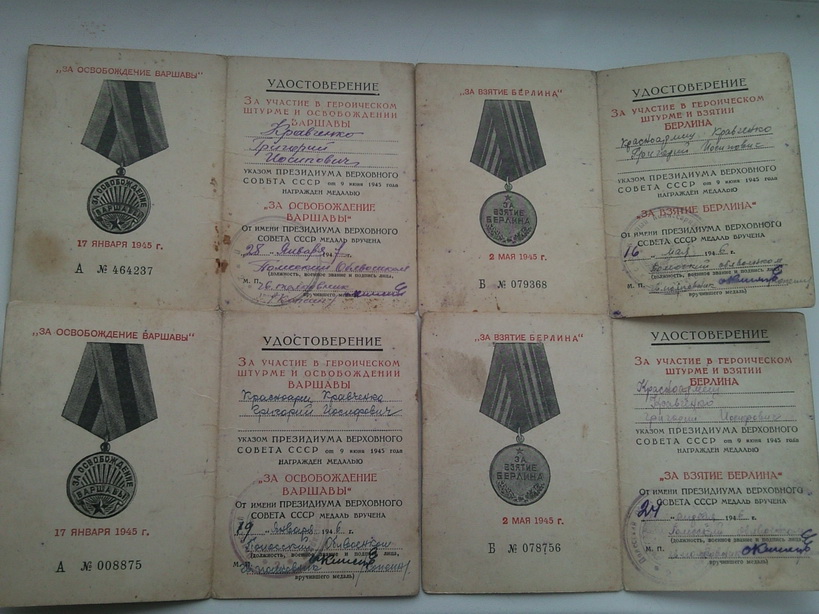 „ЗА ОСВОБОЖДЕНИЕ ВАРШАВЫ“
ЗА ОСВОБОЖДЕНИЕ
ВАРШАВЫ
17 ЯНВАРЯ 1945 г.
А № 464237
УДОСТОВЕРЕНИЕ
ЗА УЧАСТИЕ В ГЕРОИЧЕСКОМ
ШТУРМЕ И ОСВОБОЖДЕНИИ
ВАРШАВЫ
Кравченко
Григорий
Иосипович
УКАЗОМ ПРЕЗИДИУМА ВЕРХОВНОГО
СОВЕТА СССР от 9 июня 1945 года
НАГРАЖДЕН МЕДАЛЬЮ
„ЗА ОСВОБОЖДЕНИЕ
ВАРШАВЫ“
От имени ПРЕЗИДИУМА ВЕРХОВНОГО
СОВЕТА СССР МЕДАЛЬ ВРУЧЕНА
28 „ Января 194 г.
(должность, воинское звание и подпись лица,
М. П.
вручившего медаль)
„ЗА ВЗЯТИЕ БЕРЛИНА“
ЗА
ВЗЯТИЕ
БЕРЛИНА
2 МАЯ 1945 г.
Б № 079368
УДОСТОВЕРЕНИЕ
ЗА УЧАСТИЕ В ГЕРОИЧЕСКОМ
ШТУРМЕ И ВЗЯТИИ
БЕРЛИНА
Кравченко
Григорий Иосипович
УКАЗОМ ПРЕЗИДИУМА ВЕРХОВНОГО
СОВЕТА СССР от 9 июня 1945 года
НАГРАЖДЕН МЕДАЛЬЮ
„ЗА ВЗЯТИЕ БЕРЛИНА“
От имени ПРЕЗИДИУМА ВЕРХОВНОГО
СОВЕТА СССР МЕДАЛЬ ВРУЧЕНА
16 „ мая 1946 г.
(должность, воинское звание и подпись лица,
М. П.
вручившего медаль)
„ЗА ОСВОБОЖДЕНИЕ ВАРШАВЫ“
ЗА ОСВОБОЖДЕНИЕ
ВАРШАВЫ
17 ЯНВАРЯ 1945 г.
А № 008875
УДОСТОВЕРЕНИЕ
ЗА УЧАСТИЕ В ГЕРОИЧЕСКОМ
ШТУРМЕ И ОСВОБОЖДЕНИИ
ВАРШАВЫ
Кравченко
Григорий Иосифович
УКАЗОМ ПРЕЗИДИУМА ВЕРХОВНОГО
СОВЕТА СССР от 9 июня 1945 года
НАГРАЖДЕН МЕДАЛЬЮ
„ЗА ОСВОБОЖДЕНИЕ
ВАРШАВЫ“
От имени ПРЕЗИДИУМА ВЕРХОВНОГО
СОВЕТА СССР МЕДАЛЬ ВРУЧЕНА
19 „ января 1946 г.
(должность, воинское звание и подпись лица,
М. П.
вручившего медаль)
„ЗА ВЗЯТИЕ БЕРЛИНА“
ЗА
ВЗЯТИЕ
БЕРЛИНА
2 МАЯ 1945 г.
Б № 078756
УДОСТОВЕРЕНИЕ
ЗА УЧАСТИЕ В ГЕРОИЧЕСКОМ
ШТУРМЕ И ВЗЯТИИ
БЕРЛИНА
Григорий Иосифович
УКАЗОМ ПРЕЗИДИУМА ВЕРХОВНОГО
СОВЕТА СССР от 9 июня 1945 года
НАГРАЖДЕН МЕДАЛЬЮ
„ЗА ВЗЯТИЕ БЕРЛИНА“
От имени ПРЕЗИДИУМА ВЕРХОВНОГО
СОВЕТА СССР МЕДАЛЬ ВРУЧЕНА
24 „ апреля 1946 г.
(должность, воинское звание и подпись лица,
М. П.
вручившего медаль)